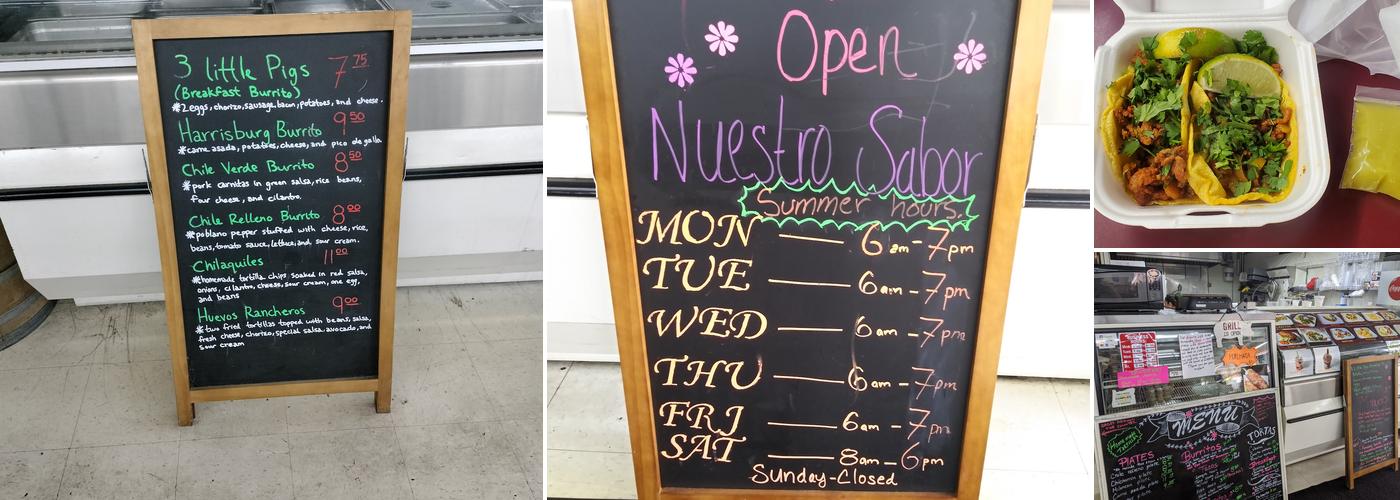 3 little Pigs 7.75
(Breakfast Burrito)
*2 eggs, chorizo, sausage, bacon, potatoes, and cheese.
Harrisburg Burrito 9.50
*carne asada, potatoes, cheese, and pico de gallo
Chile Verde Burrito 8.50
*pork carnitas in green salsa, rice beans,
four cheese, and cilantro.
Chile Relleno Burrito 8.00
*poblano pepper stuffed with cheese, rice,
beans, tomato sauce, lettuce, and sour cream.
Chilaquiles 11.00
*homemade tortilla chips soaked in red salsa,
onions, cilantro, cheese, sour cream, one egg,
and beans
Huevos Rancheros 9.00
*two fried tortillas topped with beans, salsa,
fresh cheese, chorizo, special salsa, avocado, and
sour cream
Open
Nuestro Sabor
Summer hours.
MON — 6am - 7pm
TUE — 6am - 7pm
WED — 6am - 7pm
THU — 6am - 7pm
FRI — 6am - 7pm
SAT — 8am - 6pm
Sunday-Closed
GRILL
IS OPEN
MENU
PLATES
Burritos
TORTAS